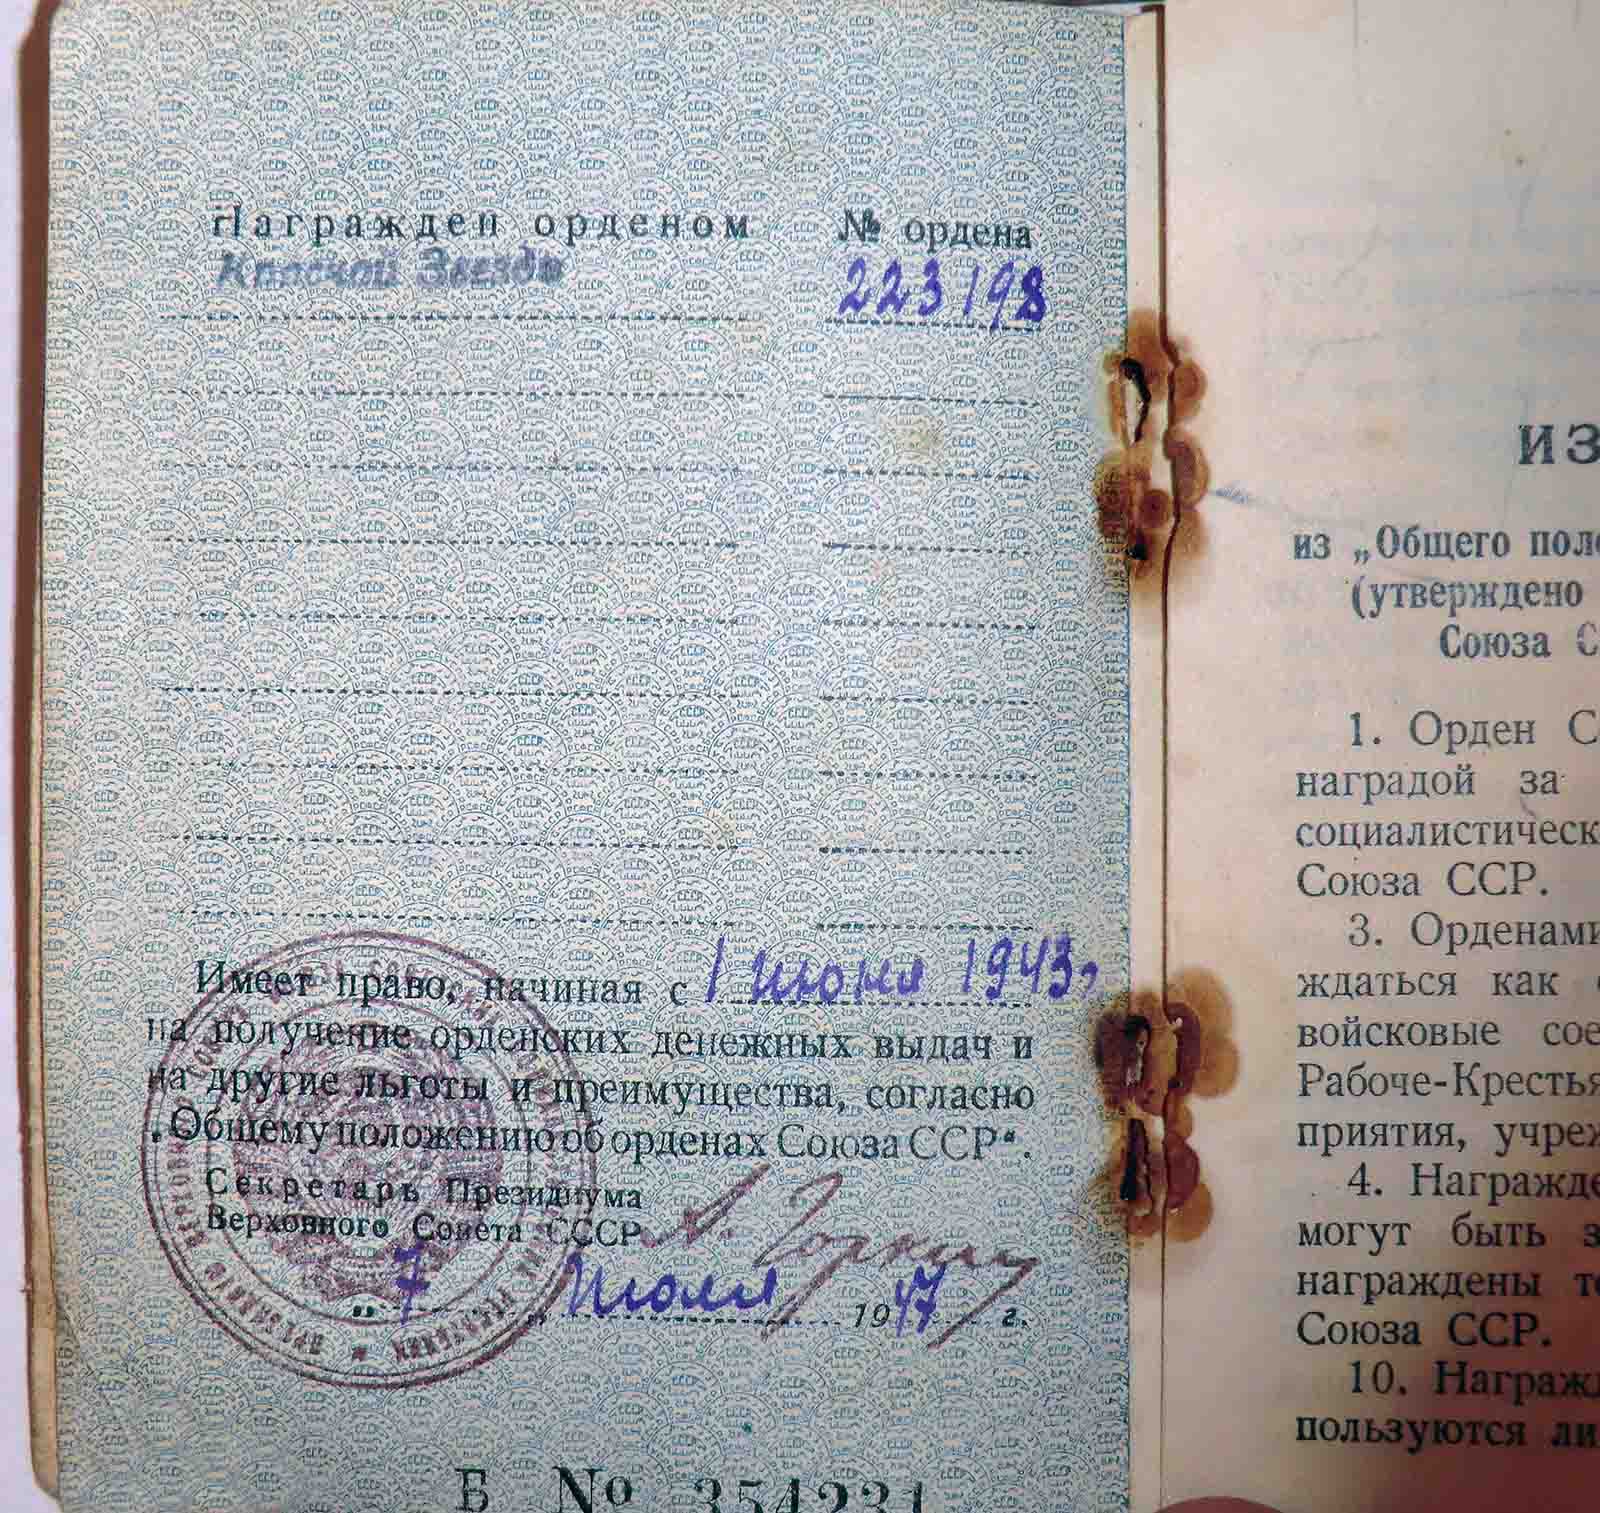 Награжден орденом № ордена
Красной Звезды 223198
Имеет право, начиная с 1 июня 1943г
на получение орденских денежных выдач и
на другие льготы и преимущества, согласно
„Общему положению об орденах Союза ССР“.
Секретарь Президиума
Верховного Совета СССР А. Горкин
„7“ Июля 1947 г.
Б № 354231
ИЗ
из „Общего поло
(утверждено
Союза С
1. Орден С
наградой за
социалистическ
Союза ССР.
3. Орденами
ждаться как
войсковые сое
Рабоче-Крестья
приятия, учреж
4. Награжде
могут быть з
награждены то
Союза ССР.
10. Награжд
пользуются ли